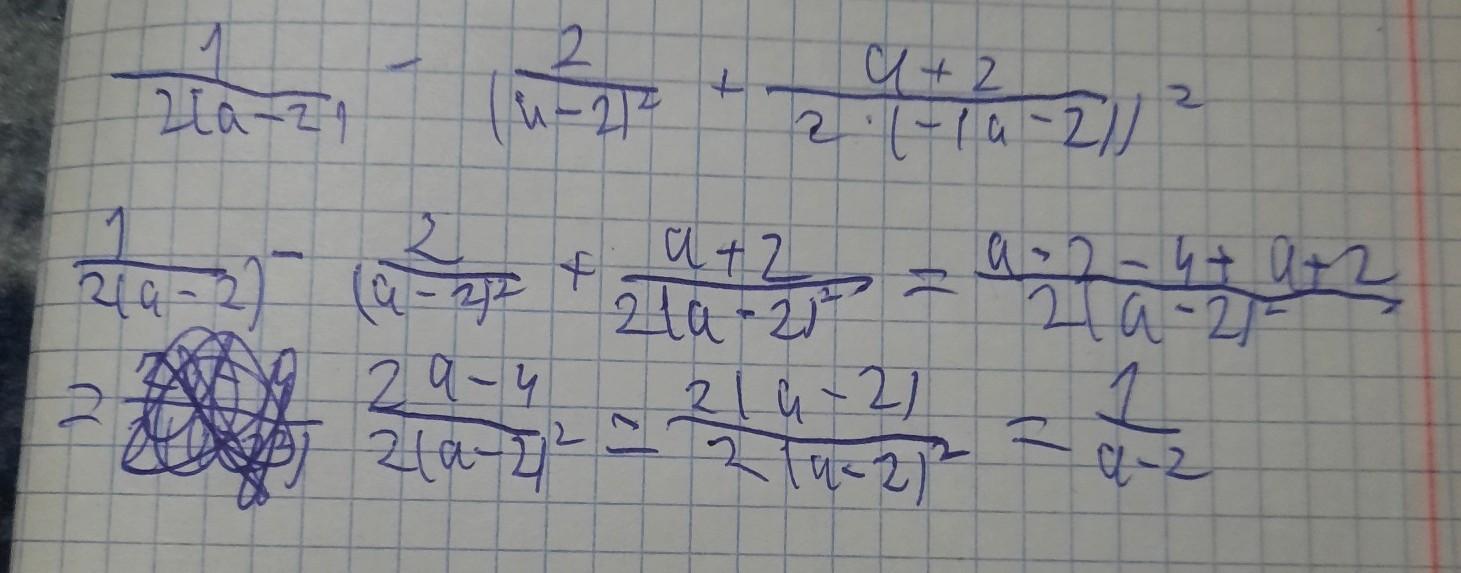 1/(2(a-2)) - 2/(a-2)² + (a+2)/(2·(-(a-2))²
1/(2(a-2)) - 2/(a-2)² + (a+2)/(2(a-2)²) = (a-2-4+a+2)/(2(a-2)²)
= (2a-4)/(2(a-2)²) = (2(a-2))/(2(a-2)²) = 1/(a-2)